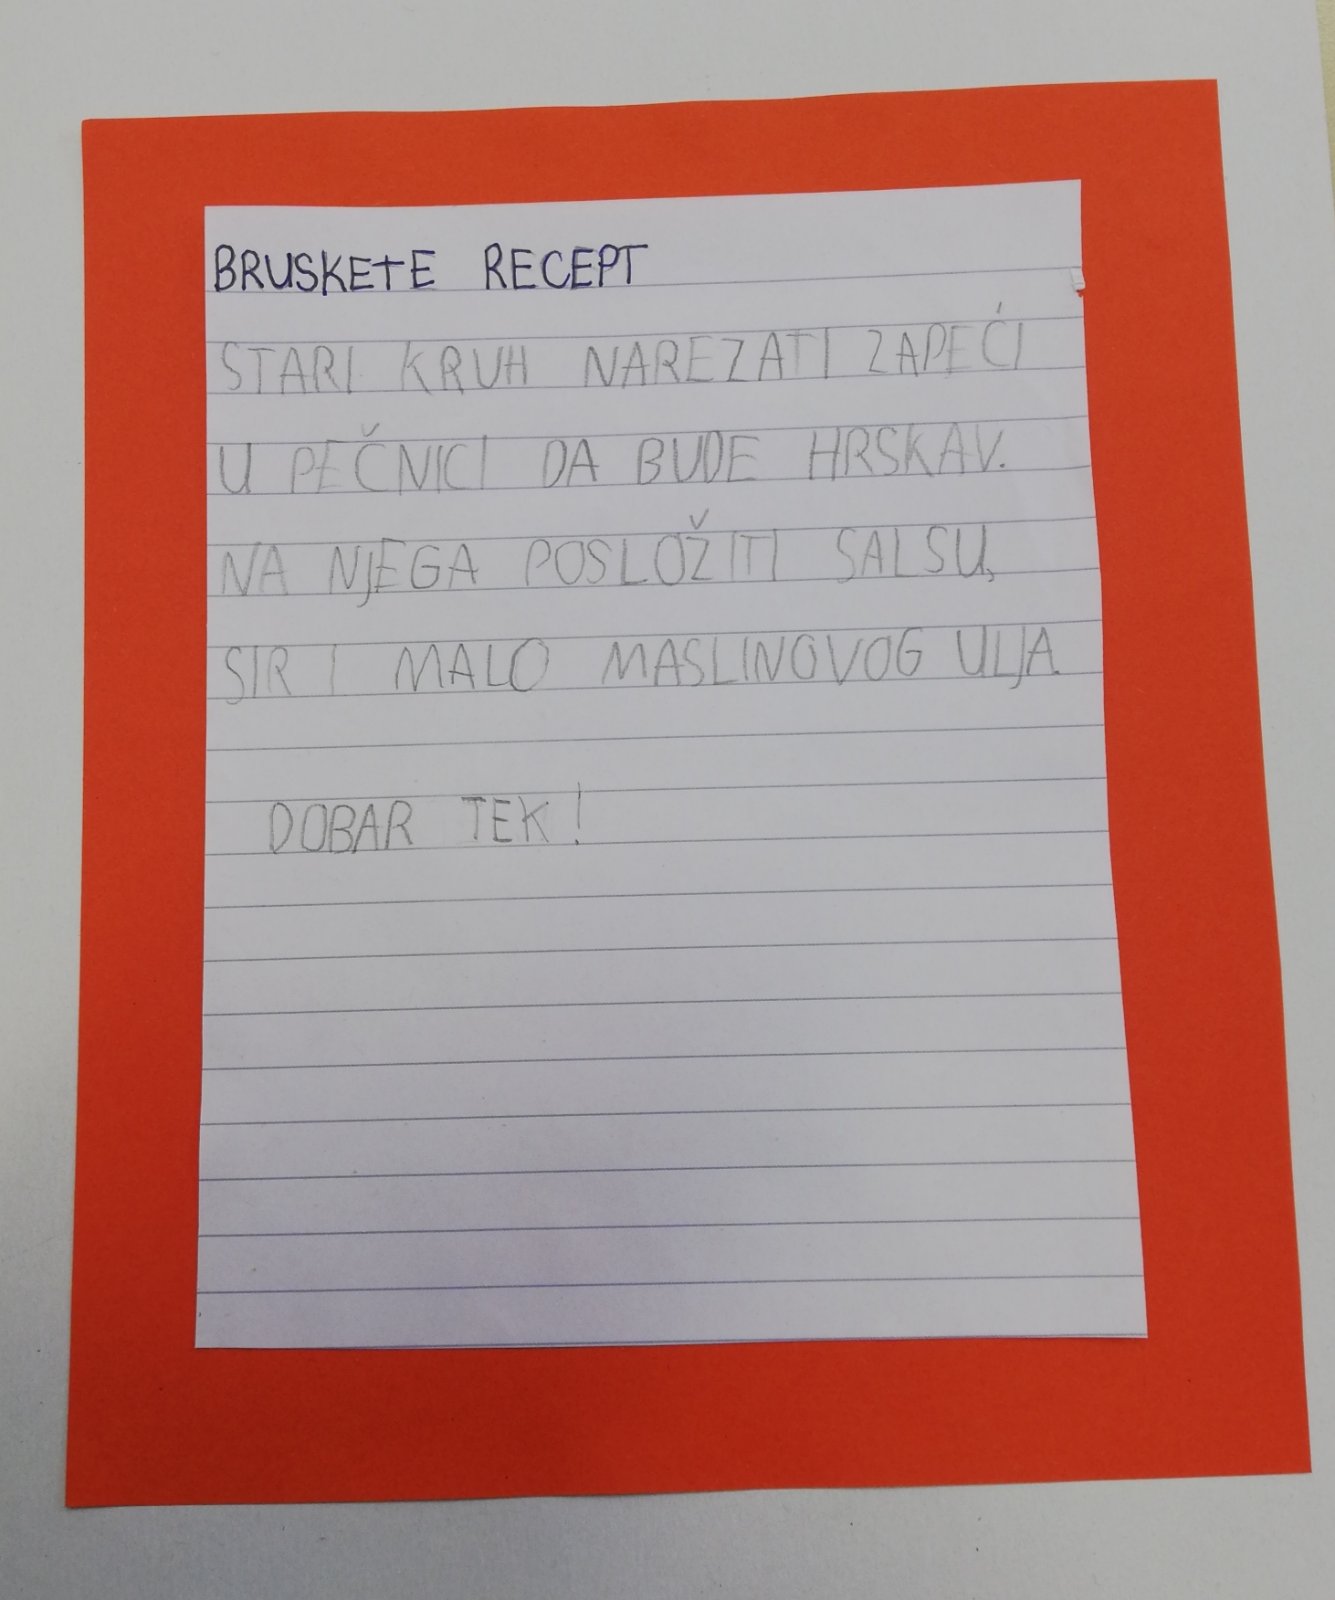 BRUSKETE RECEPT
STARI KRUH NAREZATI ZAPEĆI
U PEČNICI DA BUDE HRSKAV.
NA NJEGA POSLOŽITI SALSU,
SIR I MALO MASLINOVOG ULJA.
DOBAR TEK!